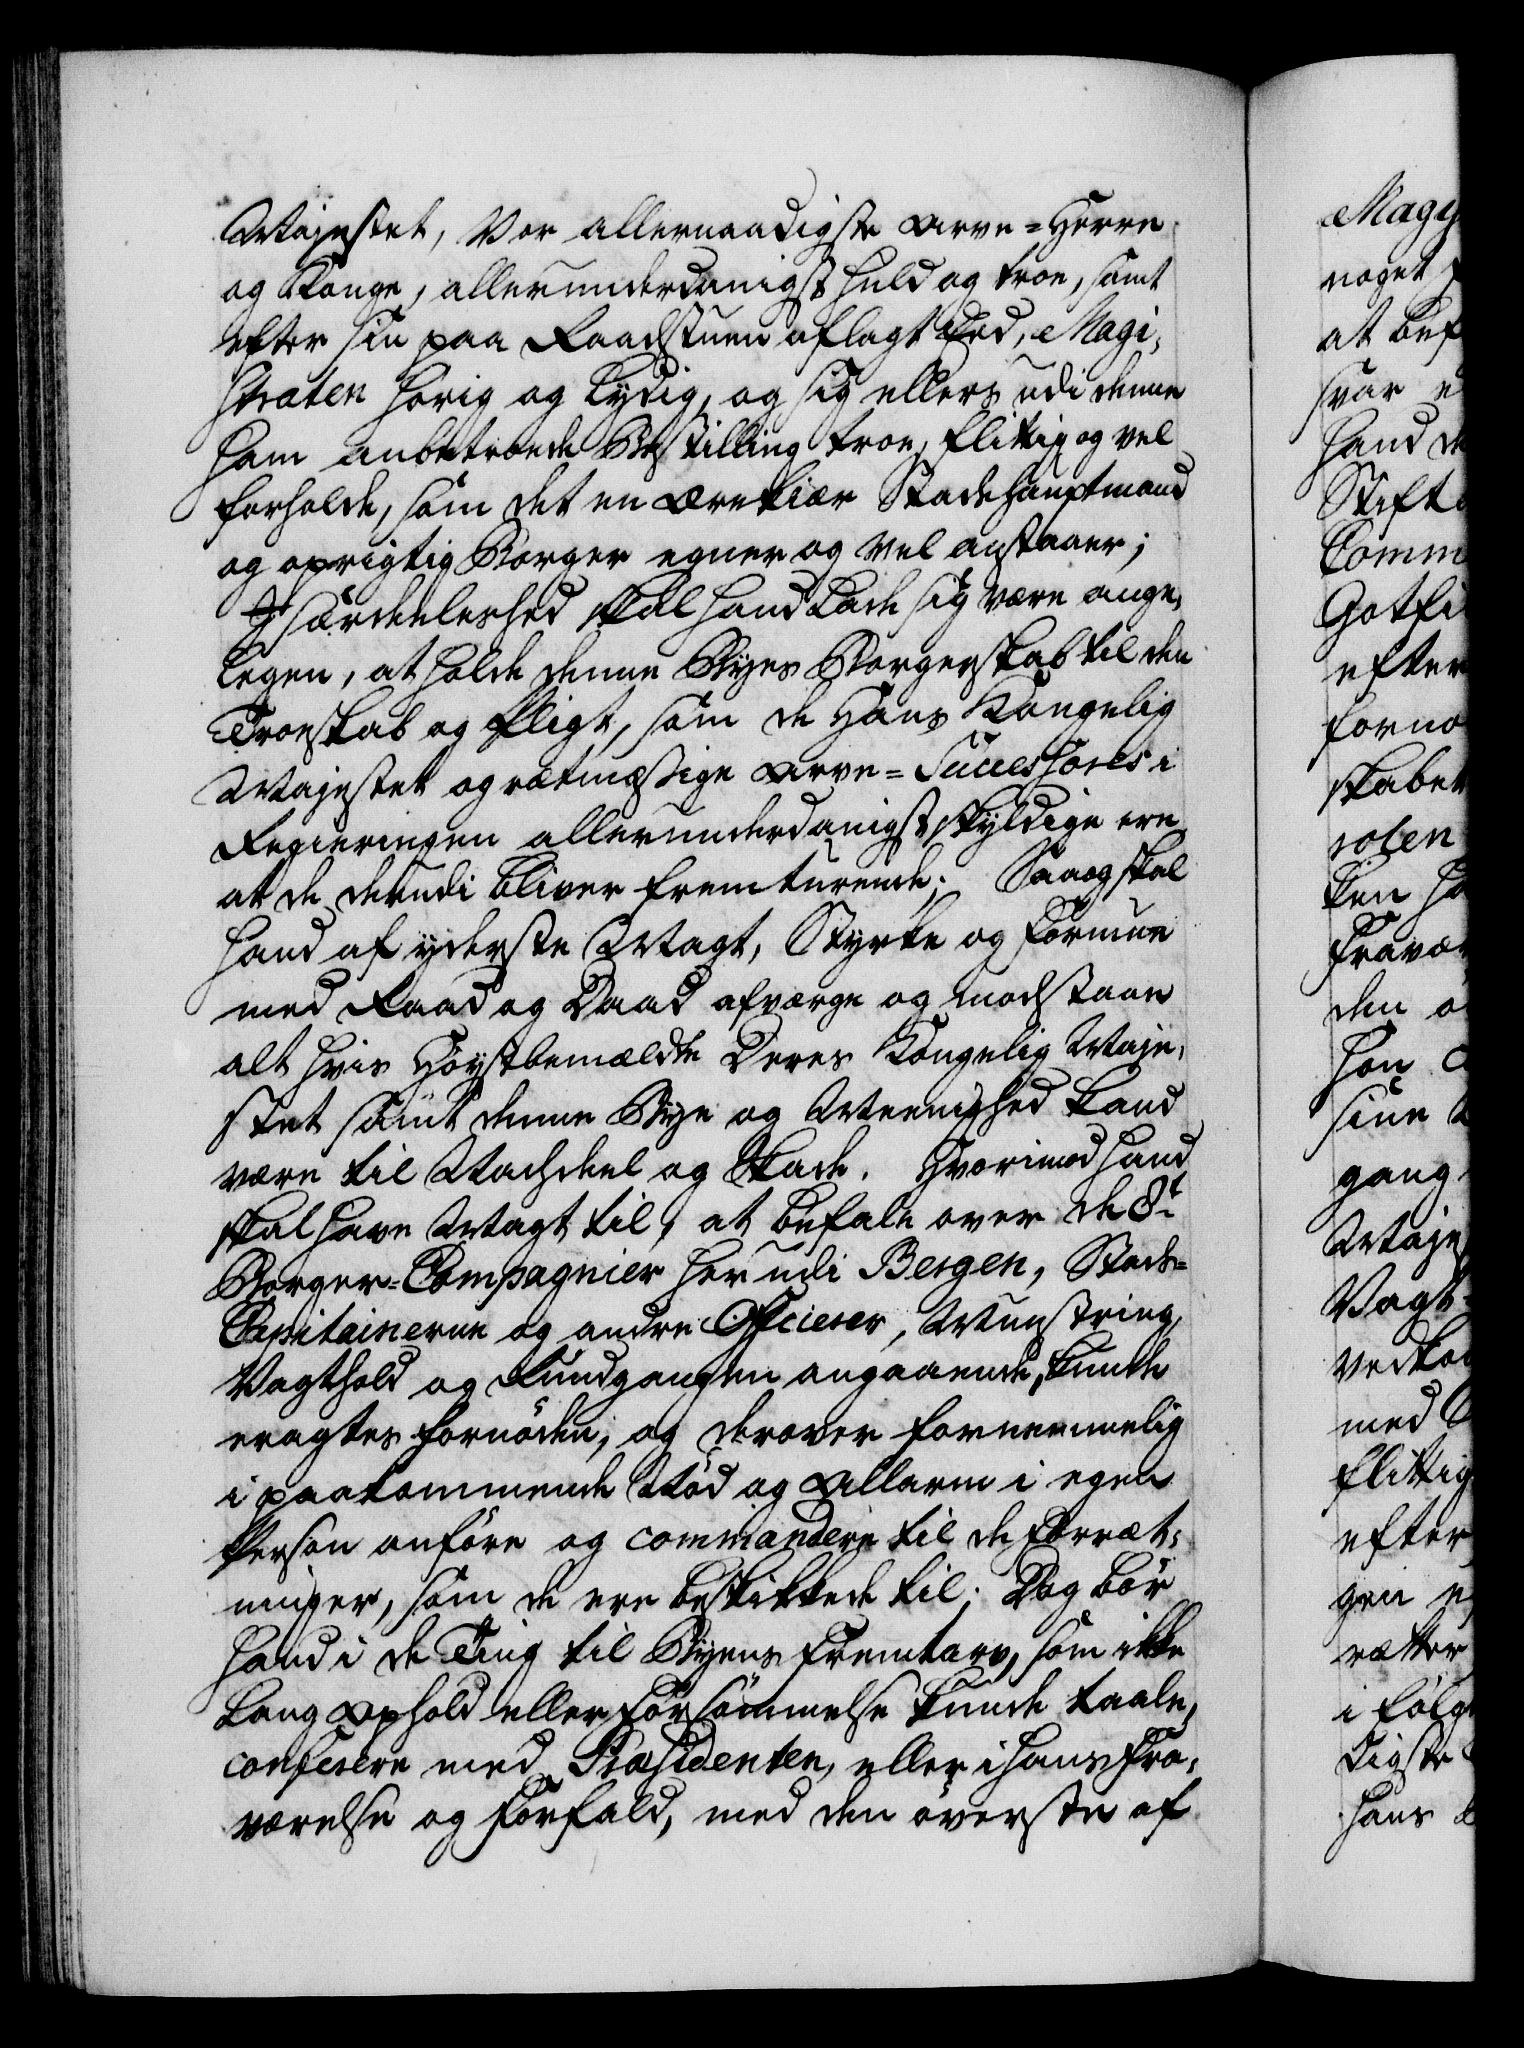 Majestet, Vor allernaadigste Arve=Herre
og Konge, allerunderdanigst huld og troe, samt
efter sin paa Raadstuen aflagt Eed, Magi,
straten hørig og lydig, og sig ellers udi denne
ham anbetroede Bestilling troe, flittig og vel
forholde, som det en ærekiær Stadshauptmand
og oprigtig Borger egner og vel anstaaer;
I særdeeleshed skal hand lade sig være ange,
legen, at holde denne Byes Borgerskab til den
Troeskab og Pligt, som de Hans Kongelig
Majestet og rætmæssige Arve=Successores i
Regieringen allerunderdanigst skyldige ere
at de derudi bliver fremturende; Saa og skal
hand af yderste Magt, Styrke og Formue
med Raad og Daad afværge og modstaae
alt hvis Høystbemældte Deres Kongelig Maje,
stet samt denne Bye og Meenighed kand
være til Nachdeel og Skade. Hvorimod hand
skal have Magt til, at befale over de 8te
Borger=Compagnier her udi Bergen, Stads=
Capitainerne og andre Officerer, Mynstring,
Vagthold og Rundgangen angaaende, kunde
eragtes fornøden, og derover fornemmelig
i paakommende Nød og Allarm i egen
Person anføre og commandere til de Forræt,
ninger, som de ere beskikkede til; Dog bør
hand i de Ting til Byens Fremtarv, som ikke
lang Ophold eller Forsømmelse kunde taale,
conferere med Præsidenten, eller i hans Fra,
værelse og Forfald, med den øverste af
Magi
noget
at bef
svar e
hand de
Stift
Comm
Gotfi
efter
forno
skabet
roten
ken ha
Fravæ
den o
hon
sine
gang
Maje
Vagt
vedko
med
flittig
efter
gen e
rætter
i følg
digste
hans